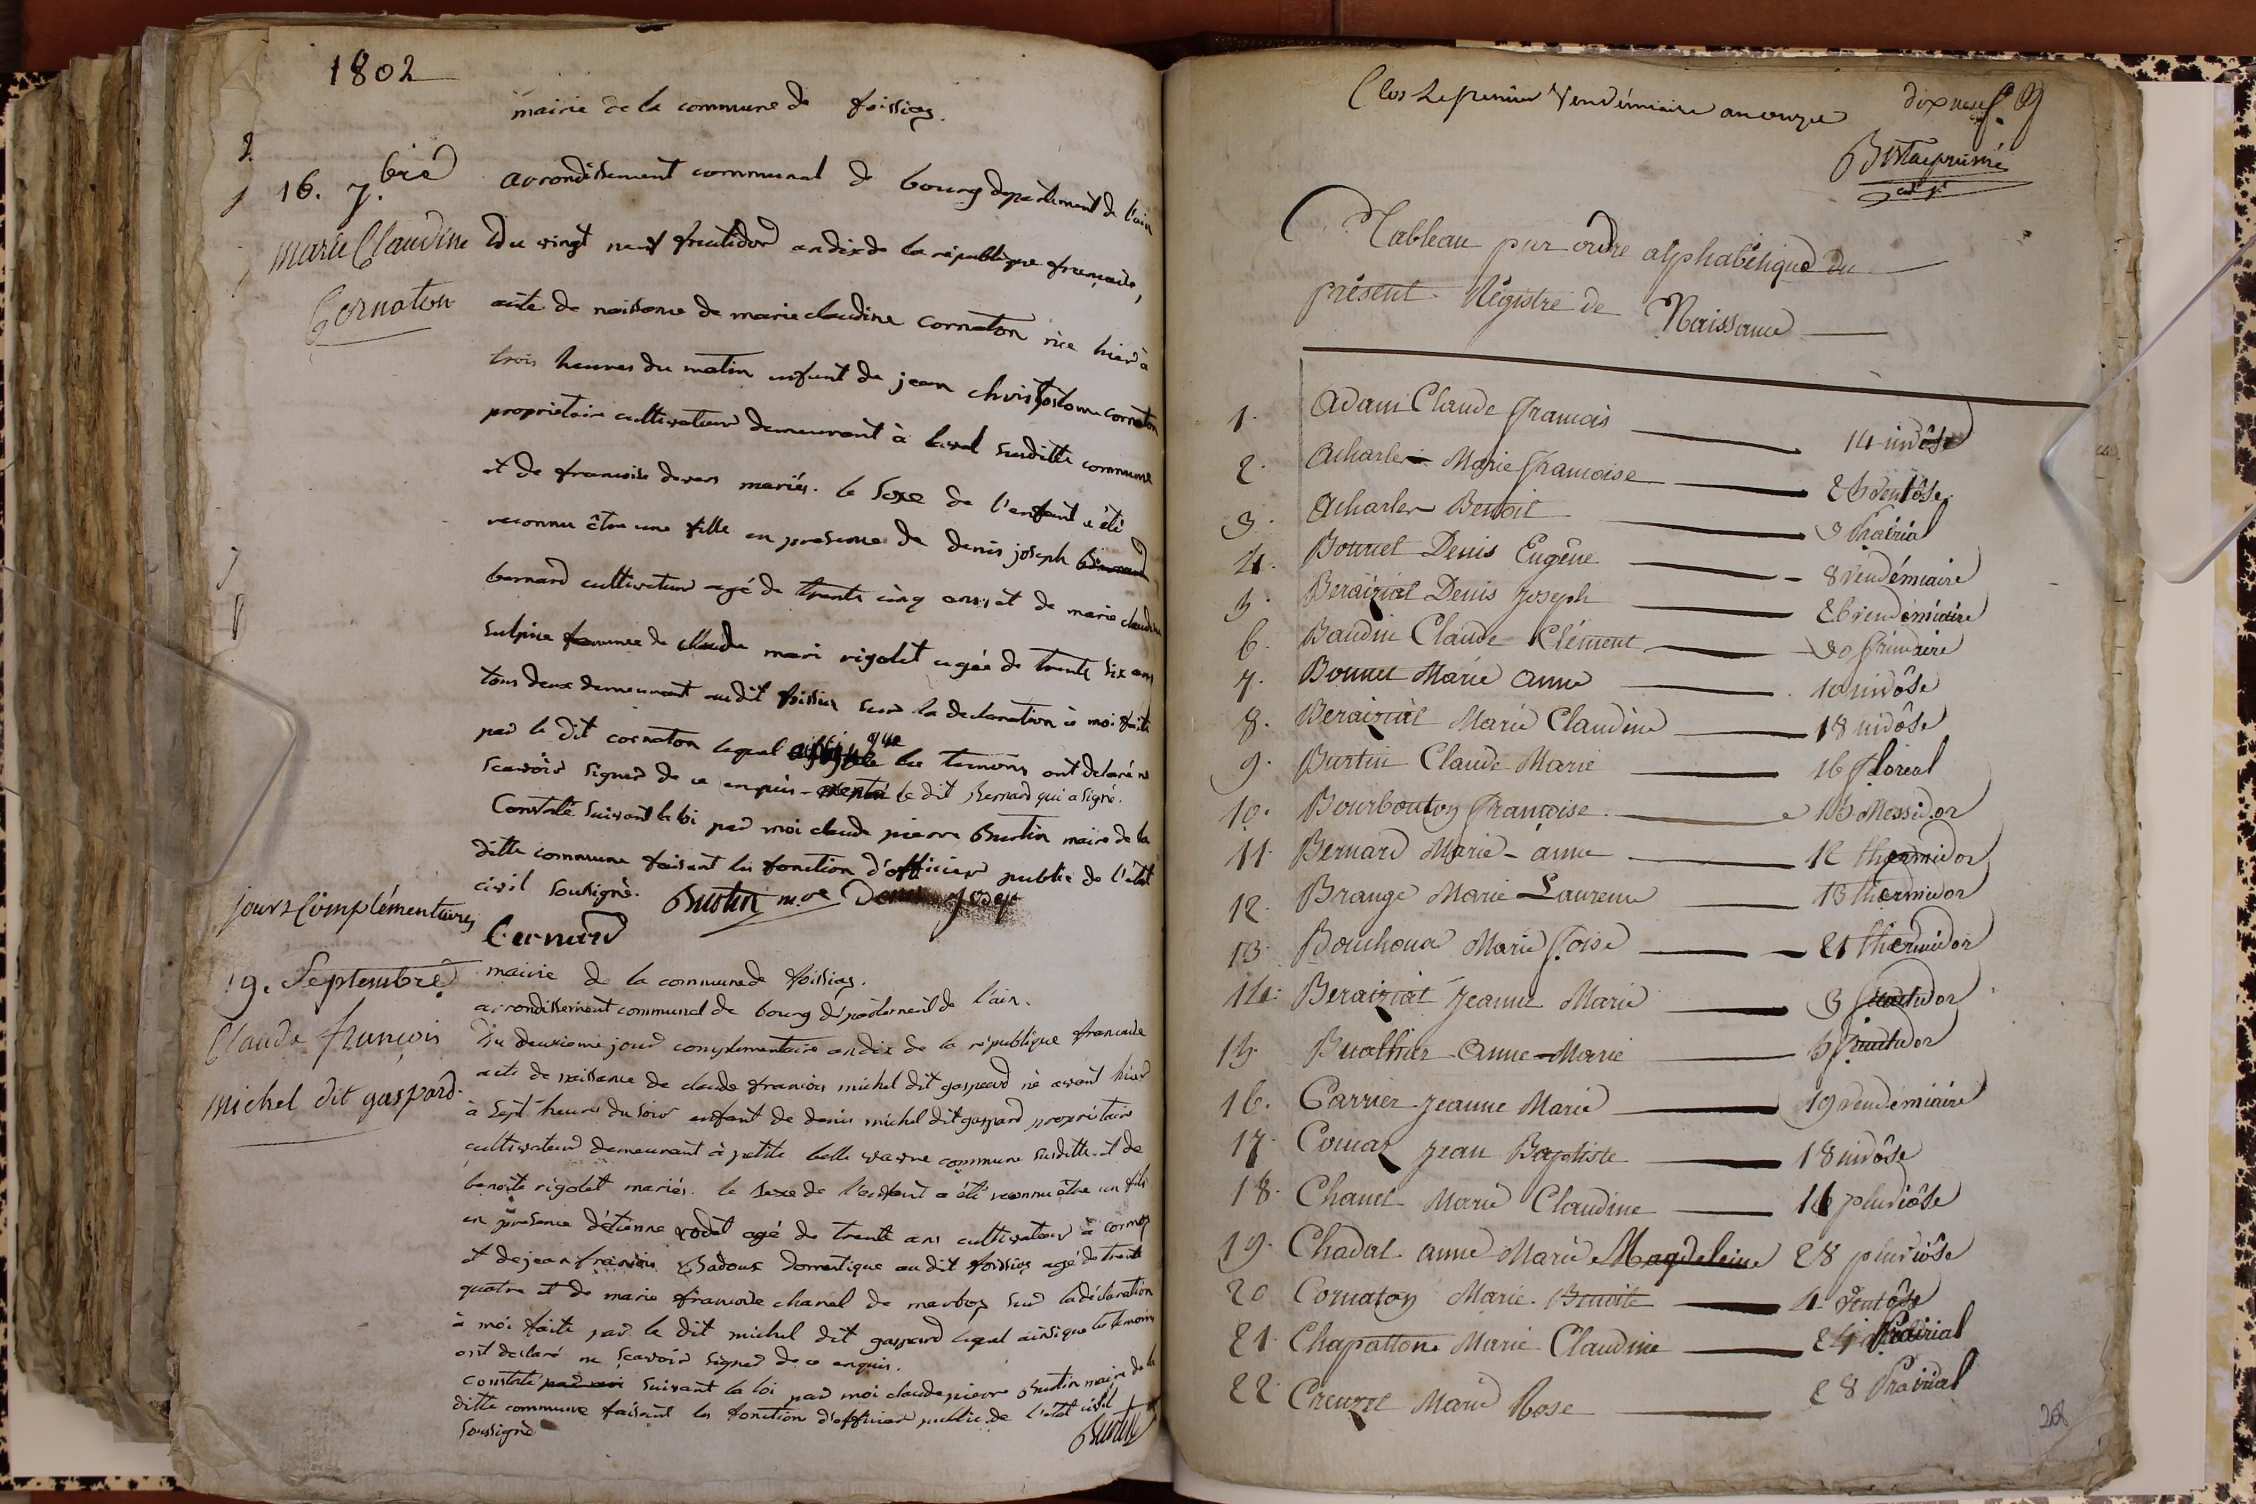 1802
mairie de la commune de foissiaz.
16. 7.bre
arrondissement communal de bourg departement de l'ain
Marie Claudine
Cornaton
du vingt neuf fructidor an dix de la république française,
acte de naissance de marie claudine cornaton née hier à
trois heures du matin enfant de jean christostome cornaton
proprietaire cultivateur demeurant à laval susditte commune
et de francoise devers mariés. le sexe de l'enfant a été
reconnu être une fille en presence de denis joseph
bernard cultivateur agé de trente cinq ans et de marie claudine
sulpice femme de claude mari rigolet agée de trente six ans
tous deux demeurant audit foissiaz sur la declaration à moi faite
par le dit cornaton lequel que les temoins ont declaré ne
scavoir signer de ce enquis excepté le dit Bernard qui a signé.
Constaté suivant la loi par moi claude pierre Burtin maire de la
ditte commune faisant les fonction d'officier public de l'état
civil sousigné. Burtin m.re Denis Josep
bernard
jours Complémentaires
19. Septembre
Claude françois
Michel dit gaspard.
mairie de la commune de foissiaz.
arrondissement communal de bourg département de l'ain.
Du deuxieme jour complementaire an dix de la république francaise
acte de naissance de claude francois michel dit gaspard né avant hier
à sept heures du soir enfant de denis michel dit gaspard proprietaire
cultivateur demeurant à petite belle vavre commune susditte et de
benoite rigolet mariés. le sexe de l'enfant a été reconnu être un fils
en presence d'étienne rodet agé de trente ans cultivateur à cormoz
et de jean francois domestique au dit foissiaz agé de trente
quatre et de marie francoise chanel de marboz sur la déclaration
à moi faite par le dit michel dit gaspard lequel ainsi que les temoins
ont declaré ne scavoir signer de ce enquis.
constaté par moi suivant la loi par moi claude pierre Burtin maire de la
ditte commune faisant les fonction d'officier public de l'état civil
soussigné Burtin
Clos Le premier Vendémiaire an onze
dix neuf.
Tableau par ordre alphabétique du
présent Régistre de Naissance
1. Adam Claude François 14 nivôse
2. Acharles Marie Françoise 26 ventôse
3. Acharles Benoit 9 Prairial
4. Bonnet Denis Eugêne 8 vendémiaire
5. Beraiziat Denis Joseph 26 vendémiaire
6. Baudin Claude Clément 30 frimaire
7. Bonnet Marie Anne 10 nivôse
8. Beraiziat Marie Claudine 18 nivôse
9. Burtin Claude Marie 16 floréal
10. Bourbouton Françoise 15 Messidor
11. Bernard Marie-anne 12 thermidor
12. Brange Marie Laurence 13 thermidor
13. Bouchoux Marie f.oise 21 thermidor
14. Beraiziat Jeanne Marie 3 fructidor
15. Buathier Anne-Marie 5 fructidor
16. Carrier Jeanne Marie 19 vendémiaire
17. Jean Baptiste 18 nivôse
18. Chanel Marie Claudine 16 pluviôse
19. Chadal anne Marie Magdeleine 28 pluviôse
20 Cornaton Marie Benoite 4 ventôse
21. Chapatton Marie Claudine 24 Prairial
22. Creuzet Marie Rose 28 Prairial